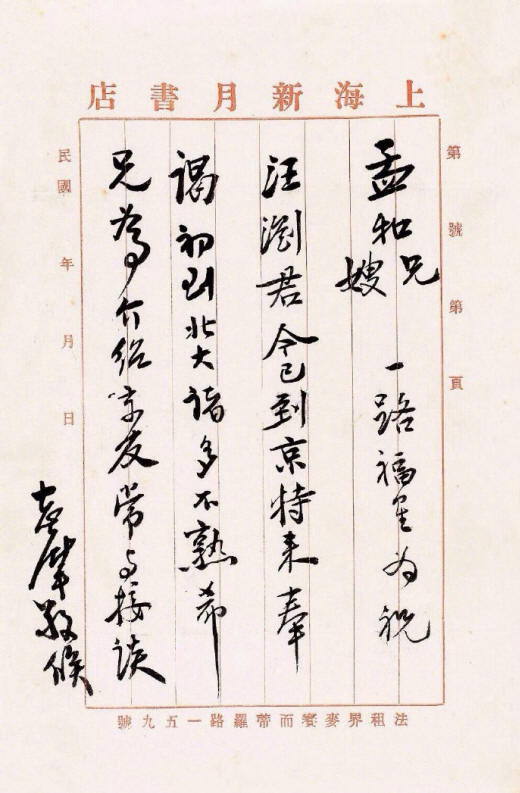 上海新月書店
第 號 第 頁
孟和兄嫂 一路福星为祝
汪瀏君今已到京特来奉
謁初到北大諸多不熟希
兄為介绍京友常与接谈
志摩敬候
民國 年 月 日
法租界麥賽而蒂羅路一五九號